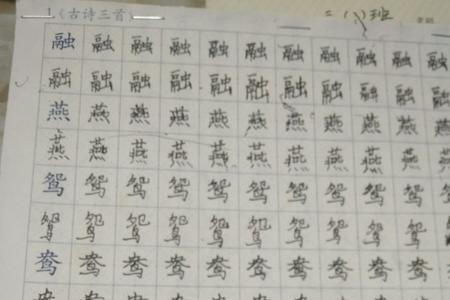 1《古诗三首》
班
融融融融融融融融融融融
融融融融融融融融融融融
燕燕燕燕燕燕燕燕燕燕燕
燕燕燕燕燕燕燕燕燕燕燕
鸳鸳鸳鸳鸳鸳鸳鸳鸳鸳鸳
鸳鸳鸳鸳鸳鸳鸳鸳鸳鸳鸳
鸯鸯鸯鸯鸯鸯鸯鸯鸯鸯鸯